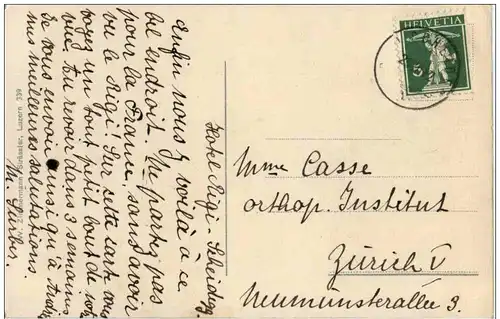 Hotel Rigi-Scheidegg.
Enfin nous y voilà à ce
bel endroit. Ne partez pas
pour la France, sans avoir
vue le Rigi! Sur cette carte vous
voyez un tout petit bout de notre
vue. Au revoir dans 3 semaines
Je vous envoi ainsi qu'à
mes meilleures salutations.
M. Furber.
Zimmermann, Luzern 539
HELVETIA
5
Mme Casse
orthop. Institut
Zürich V
Neumünsterallee 3.